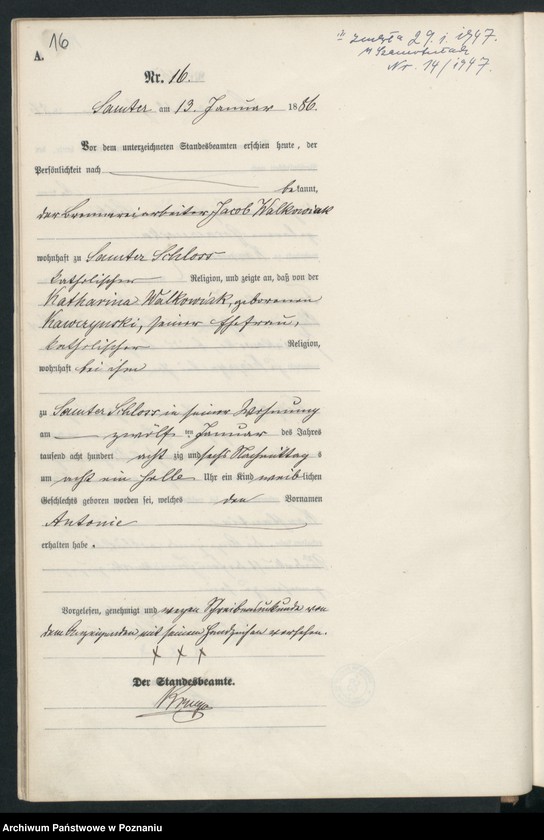 16
A.
zmarła 29.1.1947.
w Szamotułach
Nr. 14/1947.
Nr. 16.
Samter am 13. Januar 1886.
Vor dem unterzeichneten Standesbeamten erschien heute, der
Persönlichkeit nach
bekannt,
der Brennereiarbeiter Jacob Walkowiak
wohnhaft zu Samter Schloss
katholischer Religion, und zeigte an, daß von der
Katharina Walkowiak, geborenen
Kawczynski, seiner Ehefrau,
katholischer Religion,
wohnhaft bei ihm
zu Samter Schloss in seiner Wohnung
am zwölften Januar des Jahres
tausend acht hundert acht zig und sechs Nachmittags
um acht ein halb Uhr ein Kind weiblichen
Geschlechts geboren worden sei, welches den Vornamen
Antonie
erhalten habe.
Vorgelesen, genehmigt und wegen Schreibensunkunde von
dem Anzeigenden mit seinem Handzeichen versehen.
+ + +
Der Standesbeamte.
Archiwum Państwowe w Poznaniu